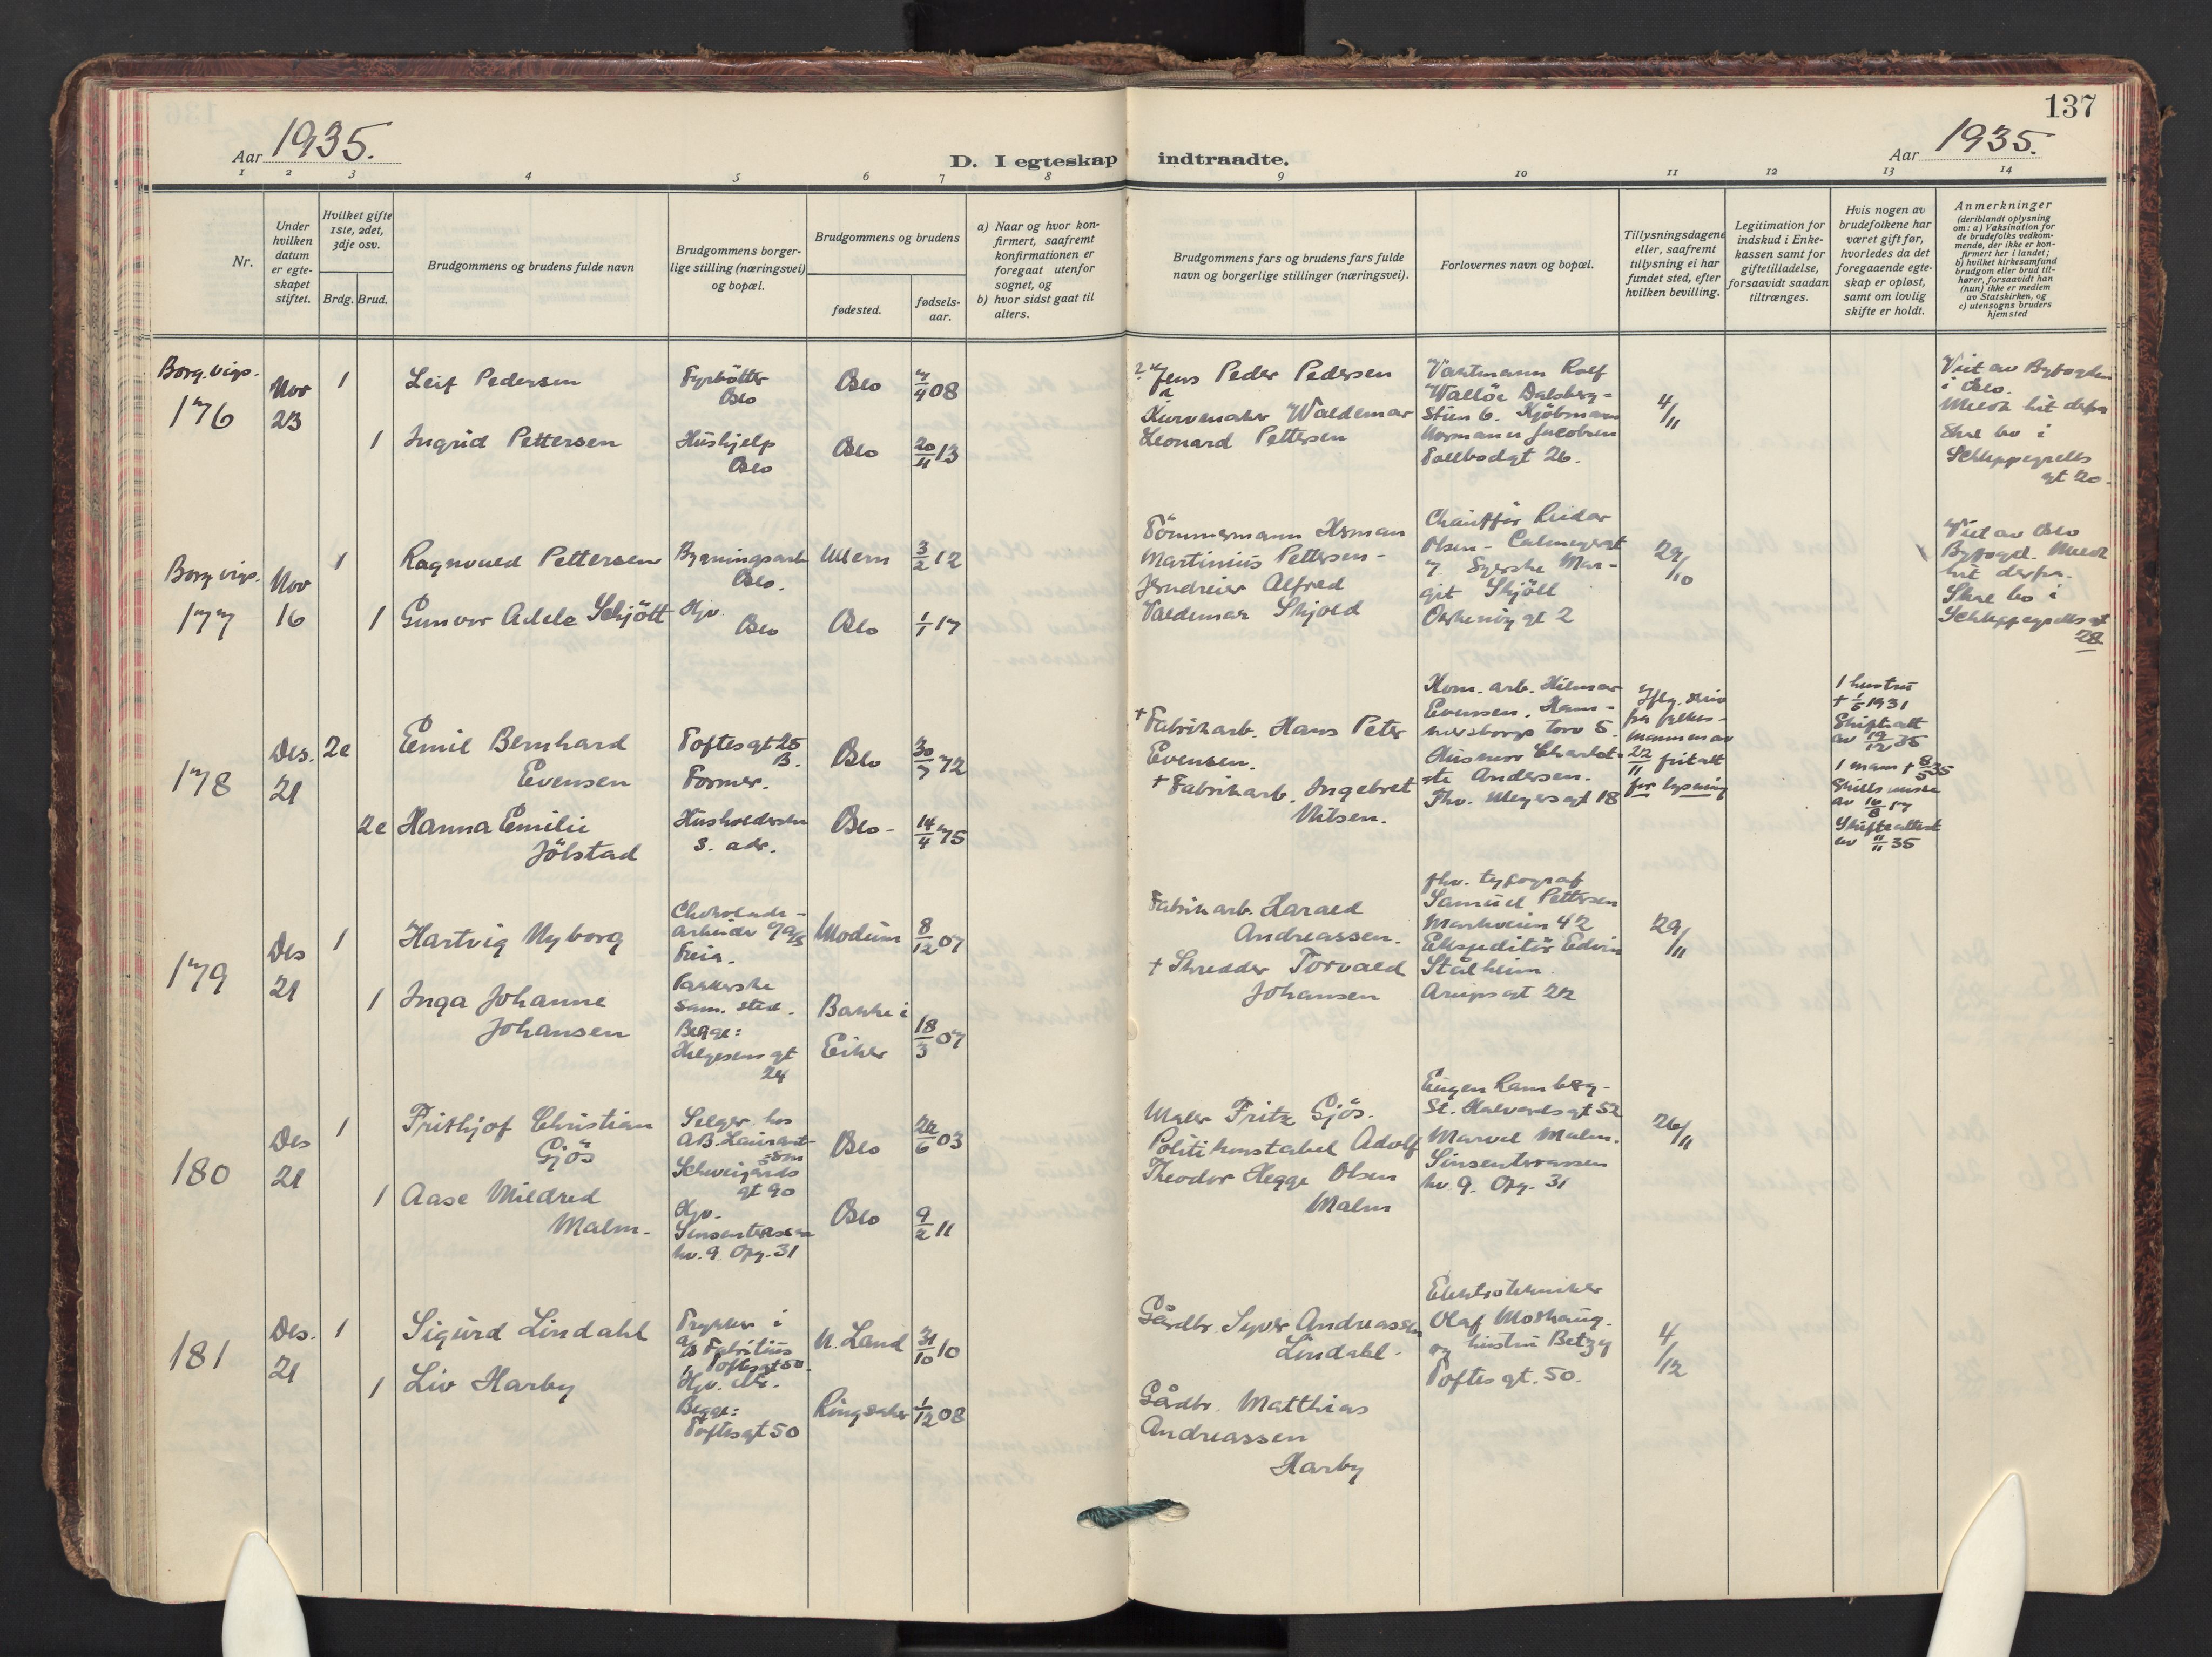 137
Aar 1935.
D. I egteskap indtraadte.
Aar 1935.
1 2 3 4 5 6 7 8 9 10 11 12 13 14
Nr.
Under
hvilken
datum
er egte-
skapet
stiftet.
Hvilket gifte
1ste, 2det,
3dje osv.
Brdg. Brud.
Brudgommens og brudens fulde navn
Brudgommens borger-
lige stilling (næringsvei)
og bopæl.
Brudgommens og brudens
fødested.
fødsels-
aar.
a) Naar og hvor kon-
firmert, saafremt
konfirmationen er
foregaat utenfor
sognet, og
b) hvor sidst gaat til
alters.
Brudgommens fars og brudens fars fulde
navn og borgerlige stillinger (næringsvei).
Forlovernes navn og bopæl.
Tillysningsdagene
eller, saafremt
tillysning ei har
fundet sted, efter
hvilken bevilling.
Legitimation for
indskud i Enke-
kassen samt for
giftetilladelse,
forsaavidt saadan
tiltrænges.
Hvis nogen av
brudefolkene har
været gift før,
hvorledes da det
foregaaende egte-
skap er opløst,
samt om lovlig
skifte er holdt.
Anmerkninger
(deriblandt oplysning
om: a) Vaksination for
de brudefolks vedkom-
mende, der ikke er kon-
firmert her i landet;
b) hvilket kirkesamfund
brudgom eller brud til-
hører, forsaavidt han
(hun) ikke er medlem
av Statskirken, og
c) utensogns bruders
hjemsted
Borg. vigs.
176
Nov
23
1
Leif Pedersen
Fyrbøtter
Oslo
Oslo
7/9 08
1
Ingrid Pettersen
Hushjelp
Oslo
Oslo
20/11 13
Jens Peder Pedersen
Kurvemaker Waldemar
Leonard Pettersen
Vaktmann Rolf
Walløe Dalsberg-
stien 6. Kjøbmann
Normann Jacobsen
Tollbodgt 26.
4/11
Viet av Byfogden
i Oslo.
Meldt hit derfra
Skal bo i
Schleppegrells
gt 20.
Borg. vigs.
177
Nov
16
1
Ragnvald Pettersen
Bygningsarb
Oslo.
Ullern
3/2 12
1
Gunvor Adele Schjött
Hjv.
Oslo
Oslo
1/1 17
Tömmermann Herman
Martinius Pettersen-
Jerndreier Alfred
Valdemar Skjold
Chauffør Reidar
Olsen- Calmeyersgt
7 Syerske Mar-
git Skjöll
Oskenøy gt 2
29/10
Viet av Oslo
Byfoged. Meldt
hit derfra.
Skal bo i
Schleppegrells gt
28
178
Des.
21
2e
Emil Bernhard
Evensen
Toftesgt 25
B.
Former.
Oslo
30/7 72
2e
Hanna Emilie
Jölstad
Husholderske
s. adr.
Oslo-
14/4 75
+ Fabrikarb. Hans Peter
Evensen.
+ Fabrikarb. Ingebret
Nilsen.
Kom. arb. Hilmar
Evensen. Ham-
mersborgs torv 5.
Andersen.
Thv. Meyersgt 18
22/11 fritatt
for lysning
1 hustru
1931
Skifteatt
av 19/12 35
1 mann + 8/5 35
av 16/8 17
Skifteattest
av 11/11 35
179
Des
21
1
Hartvig Nyborg
Chokolade-
arbeider
Freia.
Modum
8/12 07
1
Inga Johanne
Johansen
Pakkerske
Sam. sted.
Begge:
Helgesens gt
24
Bakke i
Eiker
18/3 07
Fabrikarb. Harald
Andreassen.
+ Skredder Torvald
Johansen
fhv. typograf
Samuel Pettersen
Markveien 42
Ekspeditör Edvin
Stålheim.
Arupsgt 22
29/11
180
Des
21
1
Frithjof Christian
Gjös
Selger hos
Schweigårds
gt 90
Oslo
22/6 03
1
Aase Mildred
Malm.
Hjv.
Sinsenterrassen
hv. 9. Opg. 31
Oslo
9/2 11
Maler Fritz Gjös.
Politikonstabel Adolf
Theodor Hegge Olsen
Malm
Eugen Ramberg-
St. Halvardsgt 52
Marvel Malm.
Sinsenterrassen
hv. 9. Opg. 31
26/11
181
Des.
21
1
Sigurd Lindahl
Trykker i
A/S Fabritius
Toftesgt 50.
N. Land
31/10 10
1
Liv Harby
Begge:
Toftesgt 50
Ringsaker
1/12 08
Gårdbr. Syver Andreassen
Lindahl.
Gårdbr. Matthias
Andreassen
Harby
Elektrotekniker
Olaf Moshaug-
og hustru Betzy
Toftes gt. 50.
4/12